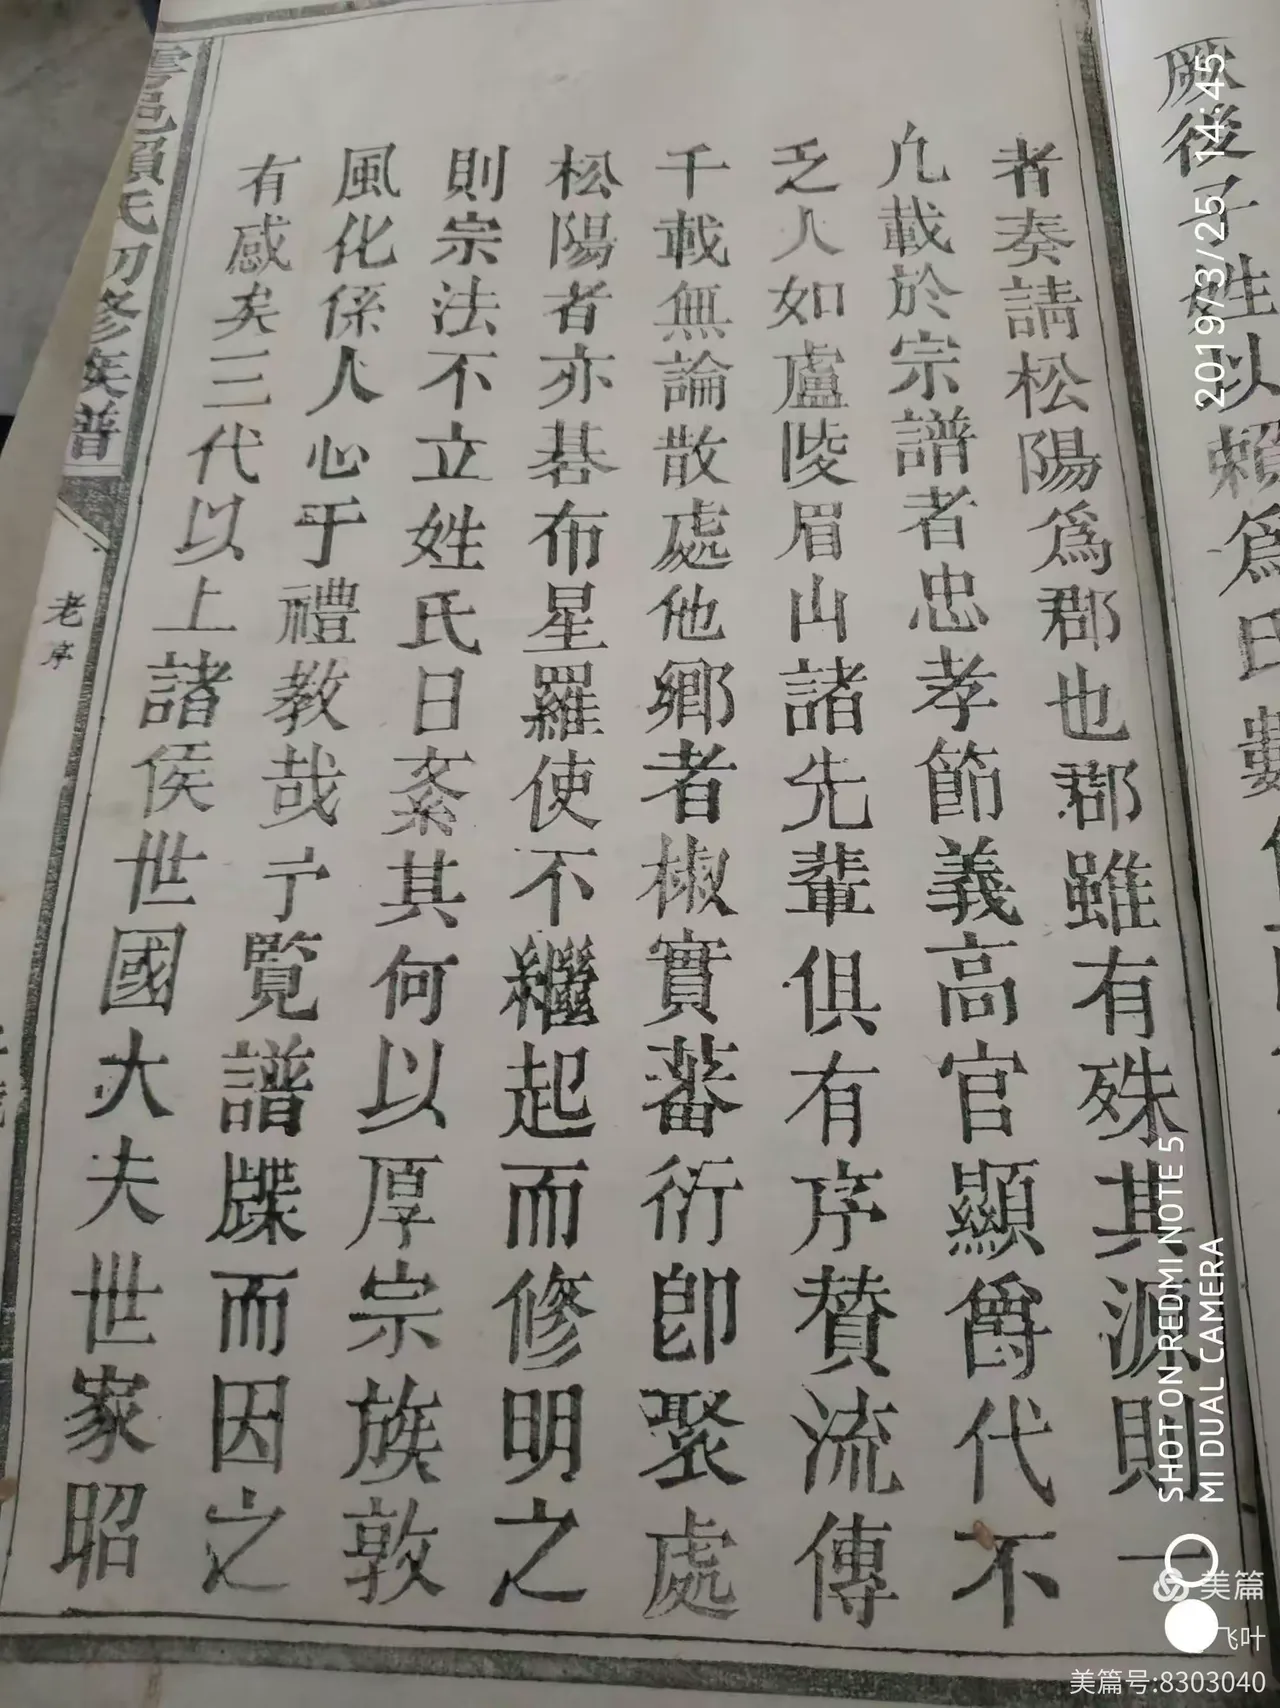 厥後子姓以賴爲氏數
者奏請松陽爲郡也郡雖有殊其源則一
凡載於宗譜者忠孝節義高官顯爵代不
乏人如盧陵眉山諸先輩俱有序贊流傳
千載無論散處他鄉者椒實蕃衍卽聚處
松陽者亦碁布星羅使不繼起而修明之
則宗法不立姓氏日紊其何以厚宗族敦
風化係人心于禮教哉予覽譜牒而因之
有感矣三代以上諸侯世國大夫世家昭
雩邑賴氏初修族譜
老序
2019/3/25 14:45
SHOT ON REDMI NOTE 5
MI DUAL CAMERA
美篇
飞叶
美篇号:8303040